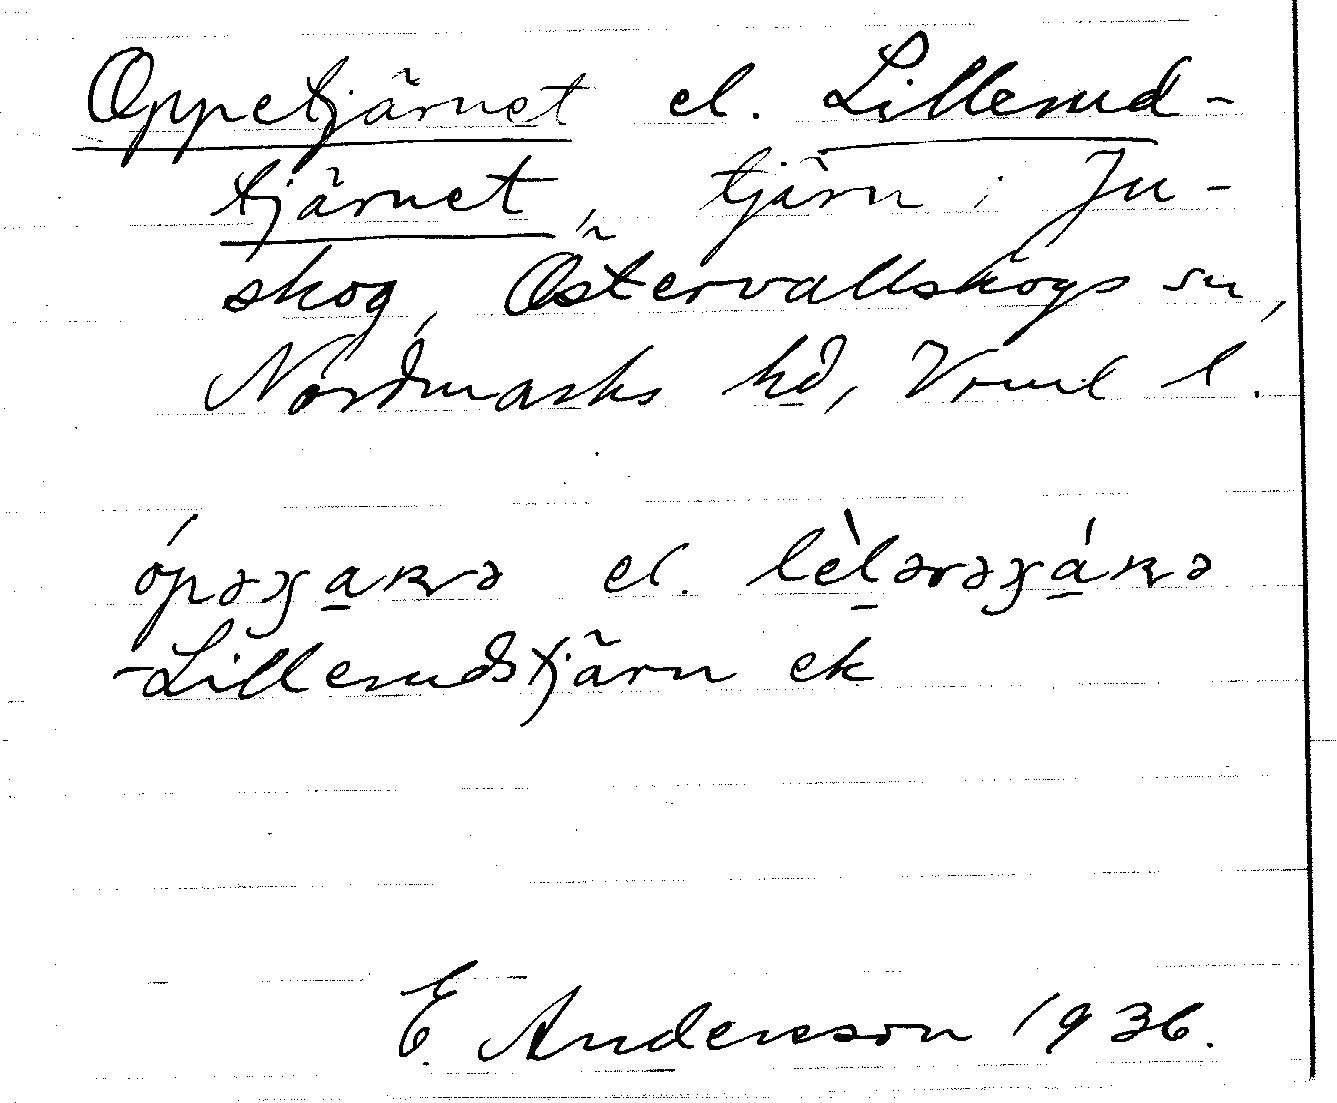 Oppetjärnet el. Lillerud-
tjärnet, tjärn i Ju-
skog, Östervallskogs sn,
Nordmarks hd, Vrml l.
ópəɣa̲ʀə el. lèl̲ərəɣá̲ʀə
-Lillerudstjärn ek
E. Andersson 1936.